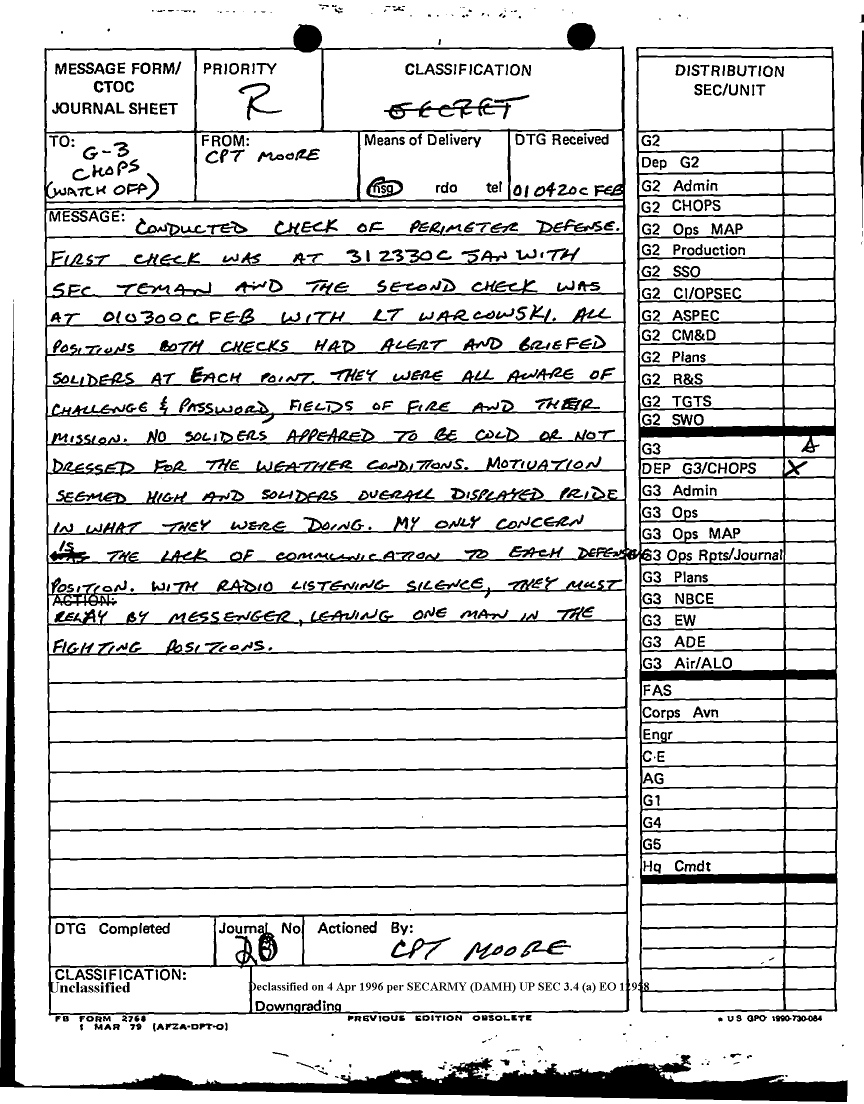 MESSAGE FORM/
CTOC
JOURNAL SHEET
PRIORITY
R
CLASSIFICATION
SECRET
TO:
G-3
CHOPS
(WATCH OFF)
FROM:
CPT MOORE
Means of Delivery
msg rdo tel
DTG Received
010420C FEB
MESSAGE: CONDUCTED CHECK OF PERIMETER DEFENSE.
FIRST CHECK WAS AT 312330C JAN WITH
SFC TEMAN AND THE SECOND CHECK WAS
AT 010300C FEB WITH LT WARCOWSKI. ALL
POSITIONS BOTH CHECKS HAD ALERT AND BRIEFED
SOLIDERS AT EACH POINT. THEY WERE ALL AWARE OF
CHALLENGE & PASSWORD, FIELDS OF FIRE AND THEIR
MISSION. NO SOLIDERS APPEARED TO BE COLD OR NOT
DRESSED FOR THE WEATHER CONDITIONS. MOTIVATION
SEEMED HIGH AND SOLIDERS OVERALL DISPLAYED PRIDE
IN WHAT THEY WERE DOING. MY ONLY CONCERN
IS THE LACK OF COMMUNICATION TO EACH DEFENSIVE
POSITION. WITH RADIO LISTENING SILENCE, THEY MUST
ACTION:
RELAY BY MESSENGER, LEAVING ONE MAN IN THE
FIGHTING POSITIONS.
DTG Completed
Journal No
20
Actioned By:
CPT MOORE
CLASSIFICATION:
Unclassified
Declassified on 4 Apr 1996 per SECARMY (DAMH) UP SEC 3.4 (a) EO 12958
Downgrading
FB FORM 2768
1 MAR 79 (AFZA-DPT-O)
PREVIOUS EDITION OBSOLETE
* US GPO 1990-730-084
DISTRIBUTION
SEC/UNIT
G2
Dep G2
G2 Admin
G2 CHOPS
G2 Ops MAP
G2 Production
G2 SSO
G2 CI/OPSEC
G2 ASPEC
G2 CM&D
G2 Plans
G2 R&S
G2 TGTS
G2 SWO
G3
DEP G3/CHOPS X
G3 Admin
G3 Ops
G3 Ops MAP
G3 Ops Rpts/Journal
G3 Plans
G3 NBCE
G3 EW
G3 ADE
G3 Air/ALO
FAS
Corps Avn
Engr
C-E
AG
G1
G4
G5
Hq Cmdt